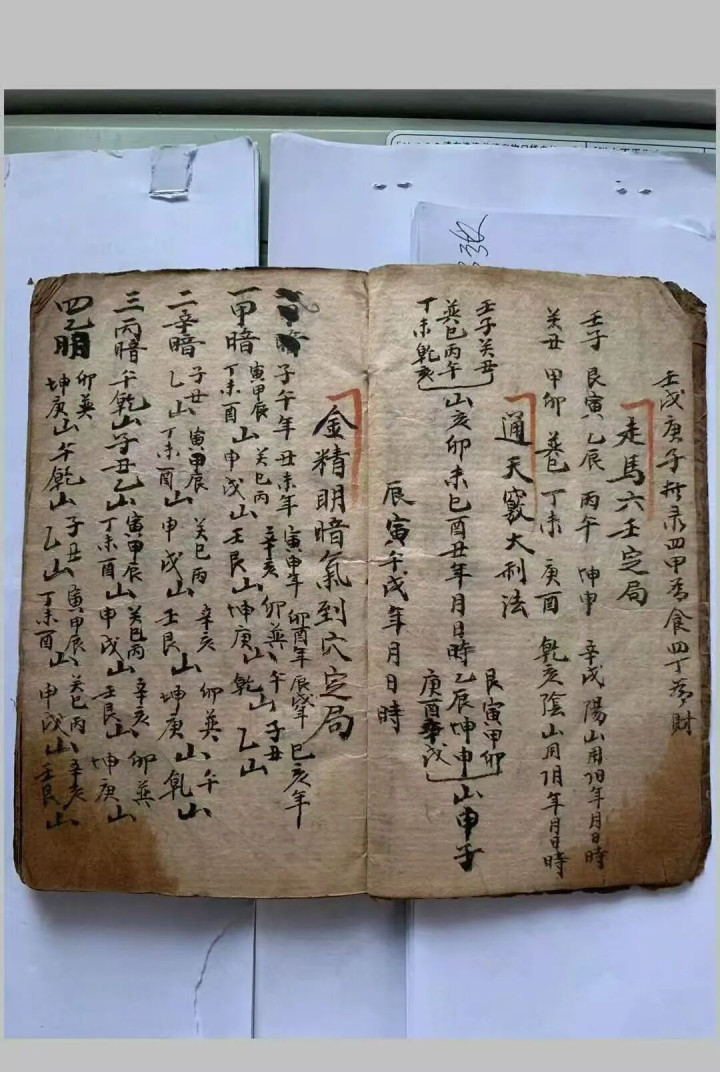 壬戌庚子四甲為食四丁為財
走馬六壬定局
壬子 艮寅 乙辰 丙午 坤申 辛戌 陽山用阳年月日時
癸丑 甲卯 巽巳 丁未 庚酉 乾亥 陰山用阴年月日時
通天竅大利法
壬子癸丑 巽巳丙午 丁未乾亥 山亥卯未巳酉丑年月日時 艮寅甲卯 乙辰坤申 庚酉辛戌 山申子
辰寅午戌年月日時
金精明暗氣到穴定局
子午年 丑未年 寅申年 卯酉年 辰戌年 巳亥年
一甲暗 寅甲辰丁未酉山 癸巳丙申戌山 辛亥壬艮山 卯巽坤庚山 午乾山 子丑乙山
二辛暗 子丑乙山 寅甲辰丁未酉山 癸巳丙申戌山 辛亥壬艮山 卯巽坤庚山 午乾山
三丙暗 午乾山 子丑乙山 寅甲辰丁未酉山 癸巳丙申戌山 辛亥壬艮山 卯巽坤庚山
四乙明 卯巽坤庚山 午乾山 子丑乙山 寅甲辰丁未酉山 癸巳丙申戌山 辛亥壬艮山